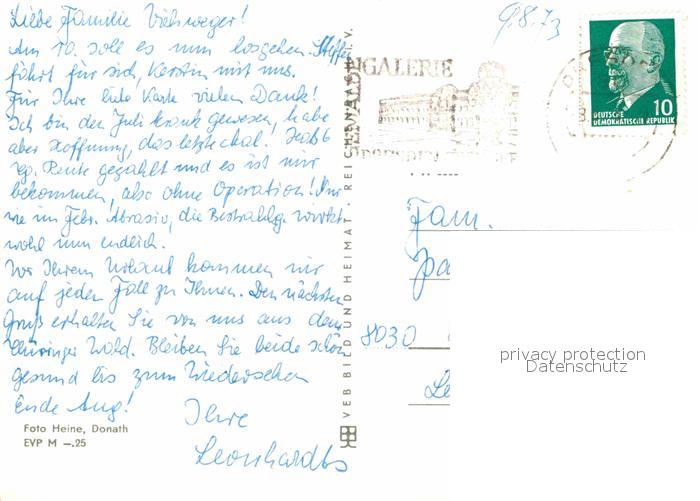 Liebe Familie Viehweger!
Am 10. soll es nun losgehen. Steffen
fährt für sich, Kerstin mit uns.
Für Ihre liebe Karte vielen Dank!
Ich bin den Juli krank gewesen, habe
aber Hoffnung, das letzte mal.
Rente gezahlt und es ist mir
bekommen, also ohne Operation! Nur
wie im Febr. Abrasio, die Bestrahlg. wirkt
wohl nun endlich.
Vor Ihrem Urlaub kommen wir
auf jeden Fall zu Ihnen. Den nächsten
Gruß erhalten Sie von uns aus dem
Thüringer Wald. Bleiben Sie beide schön
gesund bis zum Wiedersehen
Ende Aug!
Ihre
Leonhardts
Foto Heine, Donath
EVP M —.25
VEB BILD UND HEIMAT · REICHENBACH i. V.
9.8.73
GEMÄLDEGALERIE
DRESDEN
DEUTSCHE
DEMOKRATISCHE REPUBLIK
10
Fam.
8030
privacy protection
Datenschutz